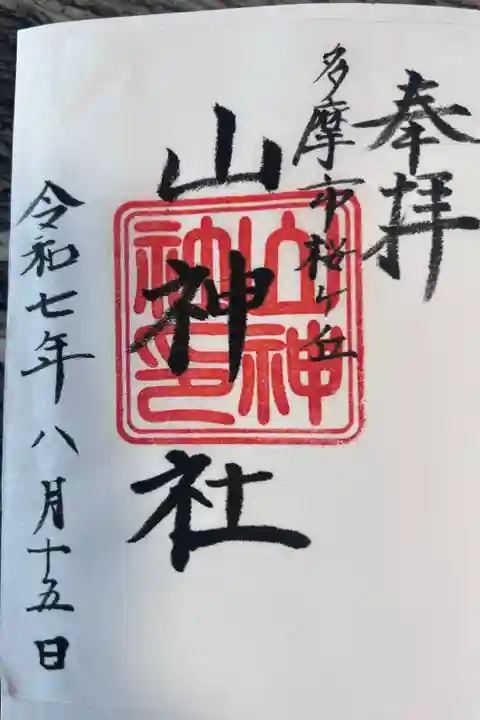 奉拝
多摩市桜ヶ丘
山神社
山神
社印
令和七年八月十五日